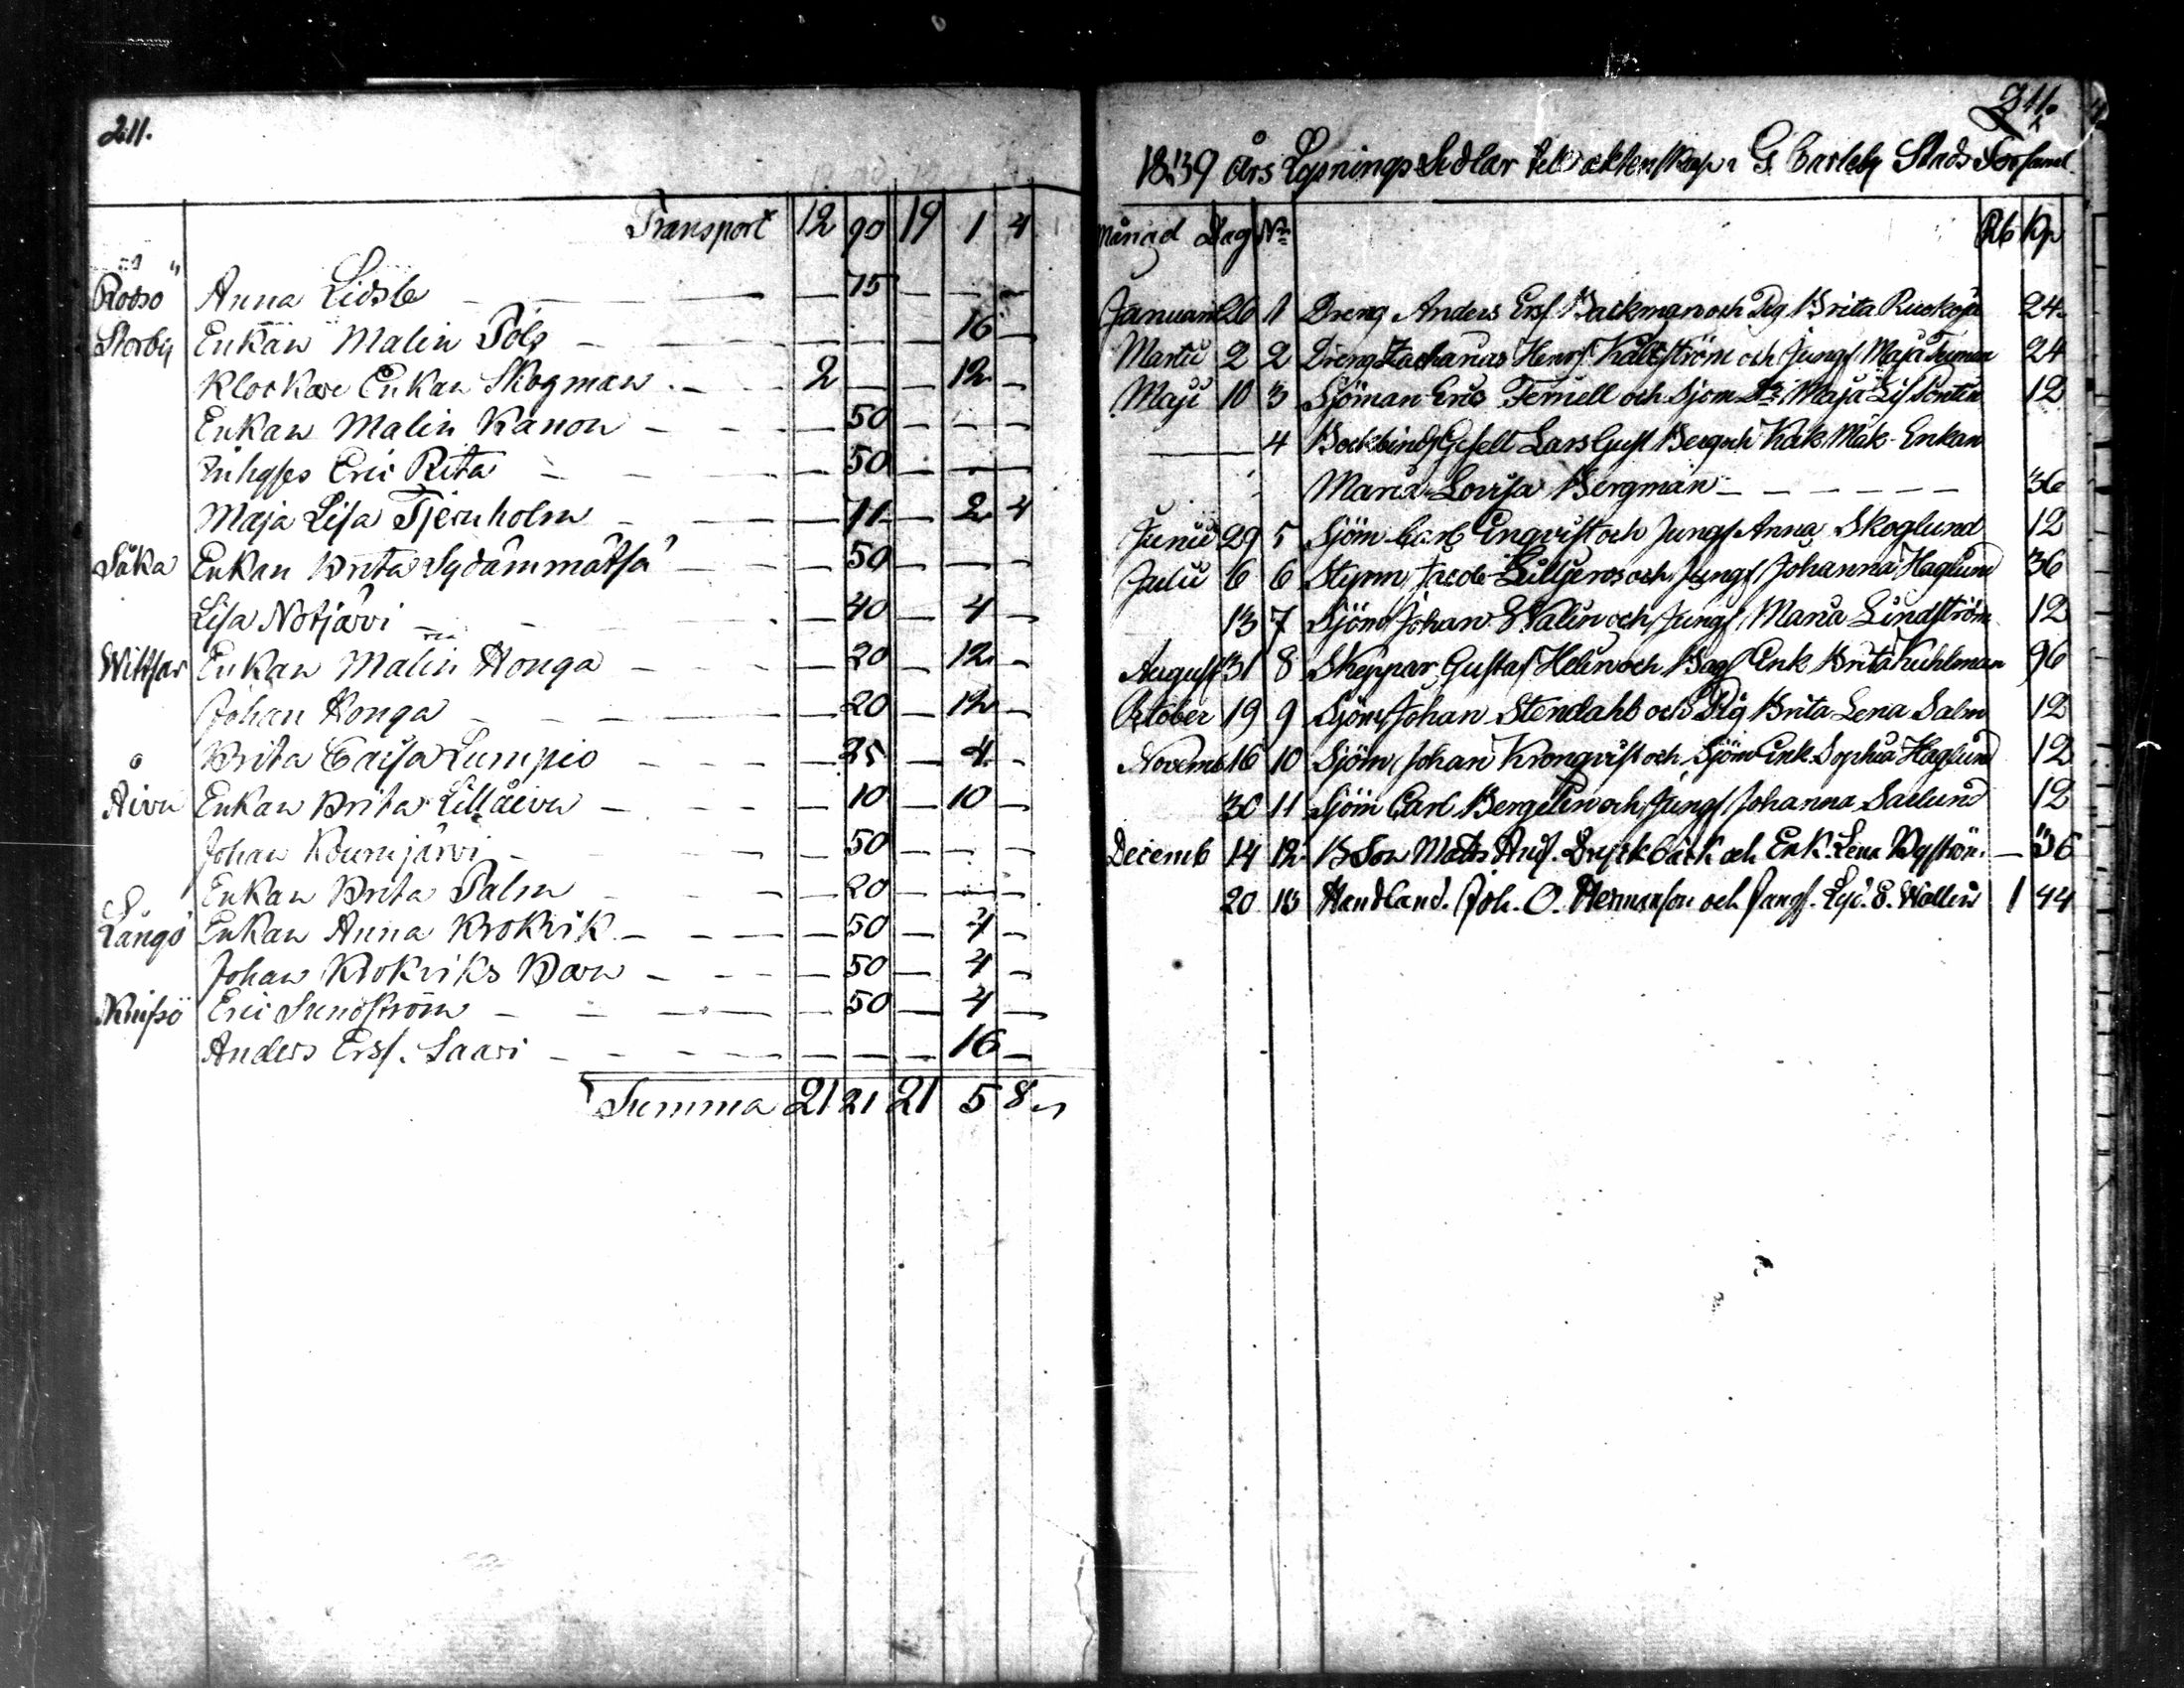 211.
Transport 12 90 19 1 4
Rödsö Anna Lidsle — 75 — — —
Storby Enkan Malin Pols — — — 16 —
Klockare Enkan Skogman 2 — — 12 —
Enkan Malin Kanon — 50 — — —
Inhyses Eric Rita — 50 — — —
Maja Lisa Tjernholm — 71 — 2 4
Såka Enkan Brita Sydämmätsä — 50 — — —
Lisa Notjärvi — 40 — 4 —
Wittsar Enkan Malin Honga — 20 — 12 —
Johan Honga — 20 — 12 —
Brita Caisa Lumpio — 25 — 4 —
Åivu Enkan Brita Lillåivu — 10 — 10 —
Johan — 50 — — —
Enkan Brita Palm — 20 — — —
Långö Enkan Anna Krokvik — 50 — 4 —
Johan Krokviks Barn — 50 — 4 —
Knifsö Eric Sundström — 50 — 4 —
Anders Erss. Saari — — — 16 —
Summa 21 21 21 5 8
211.
1839 års Lysnings Sedlar till äktenskap i G. Carleby Stads Församl.
Månad Dag No Rb Kp
Januari 26 1 Dreng Anders Ersf. Backman och Pig Brita 24
Martii 2 2 Dreng Zacharias Henrs. Källström och Jungf. Maja 24
Maji 10 3 Sjöman Eric Fernell och Sjöm Maja Lis Pontin 12
— 4 Bockbind Gesell Lars Gust Berg och Enkan
Maria Lovisa Bergman — 36
Junii 29 5 Sjöm Carl Enqvist och Jungf Anna Skoglund 12
Julii 6 6 Styrm Jacob Lilljeros och Jungf Johanna Haglund 36
13 7 Sjöm Johan Walin och Jungf Maria Lindström 12
August 31 8 Skeppar Gustaf Helin och Bag Enk Brita Kuhlman 96
October 19 9 Sjöm Johan Stendahl och Pig Brita Lena Salm 12
Novemb 16 10 Sjöm Johan Kronqvist och Sjöm Enk Sophia Haglund 12
30 11 Sjöm Carl Bergelin och Jungf Johanna Saelund 12
Decemb 14 12 B Son Matts Dryckbäck och Enk. Lena Nyström — 36
20 13 Handland. Joh. O. Hermanson och Jungf. Lys. E. Wallin 1 44